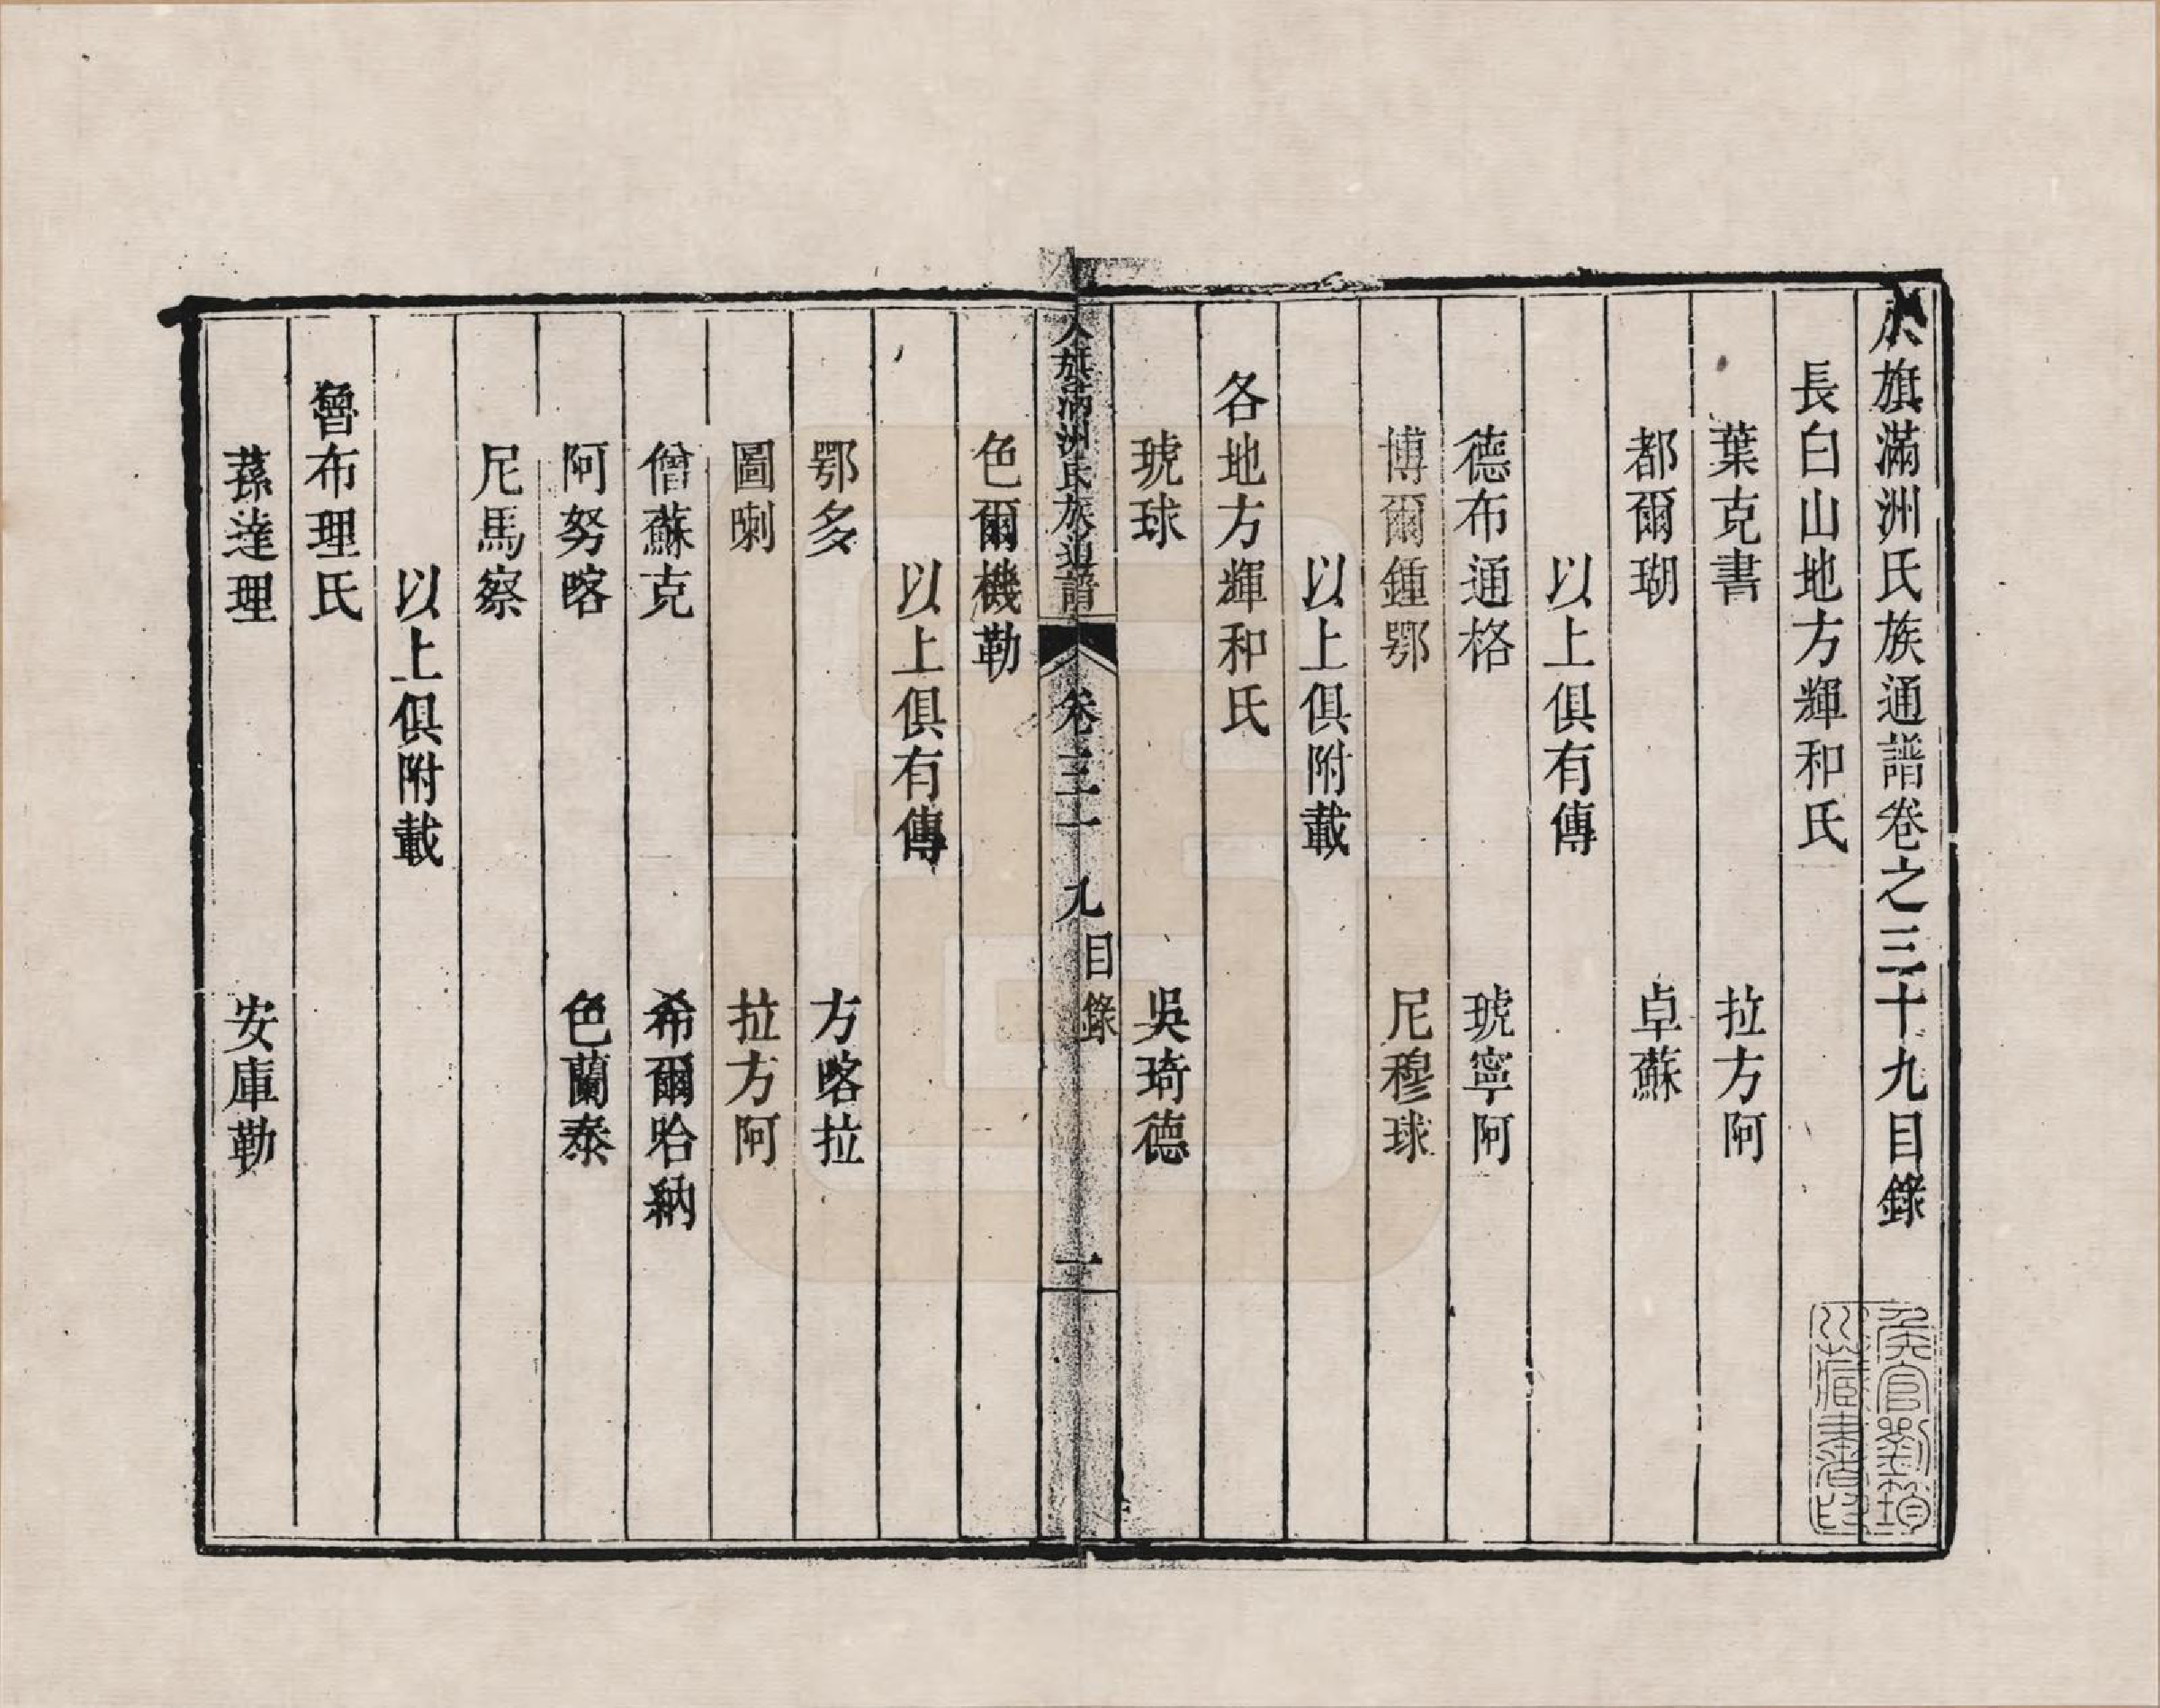 八旗滿洲氏族通譜卷之三十九目錄
長白山地方輝和氏
葉克書　拉方阿
都爾瑚　卓蘇
以上俱有傳
德布通格　琥寧阿
博爾鍾鄂　尼穆球
以上俱附載
各地方輝和氏
琥球　吳琦德
八旗滿洲氏族通譜　卷三十九目錄　一
色爾機勒
以上俱有傳
鄂多　方喀拉
圖喇　拉方阿
僧蘇克　希爾哈納
阿努喀　色蘭泰
尼馬察
以上俱附載
魯布理氏
蓀達理　安庫勒
侯官劉筠
川藏書印